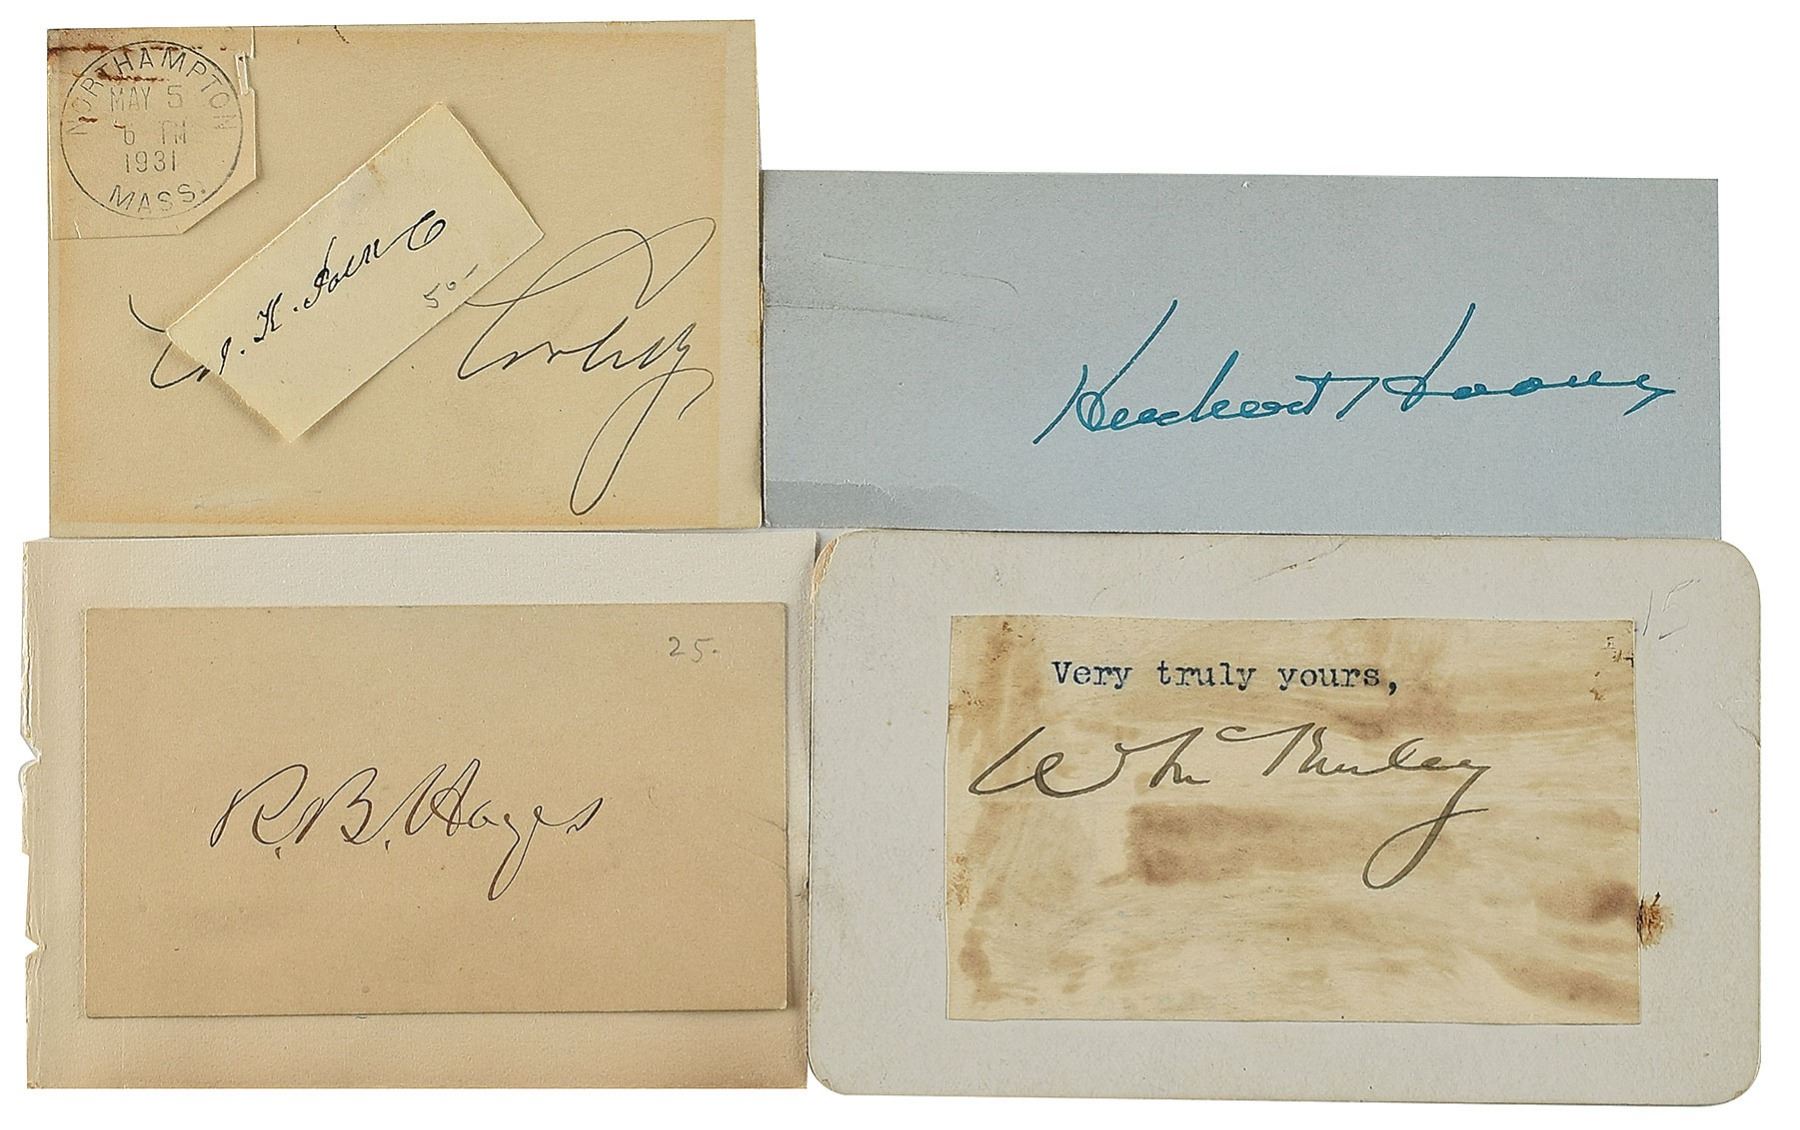 NORTHAMPTON
MAY 5
6 PM
1931
MASS.
50-
Coolidge
Herbert Hoover
25.
R. B. Hayes
15
Very truly yours,
Wm McKinley